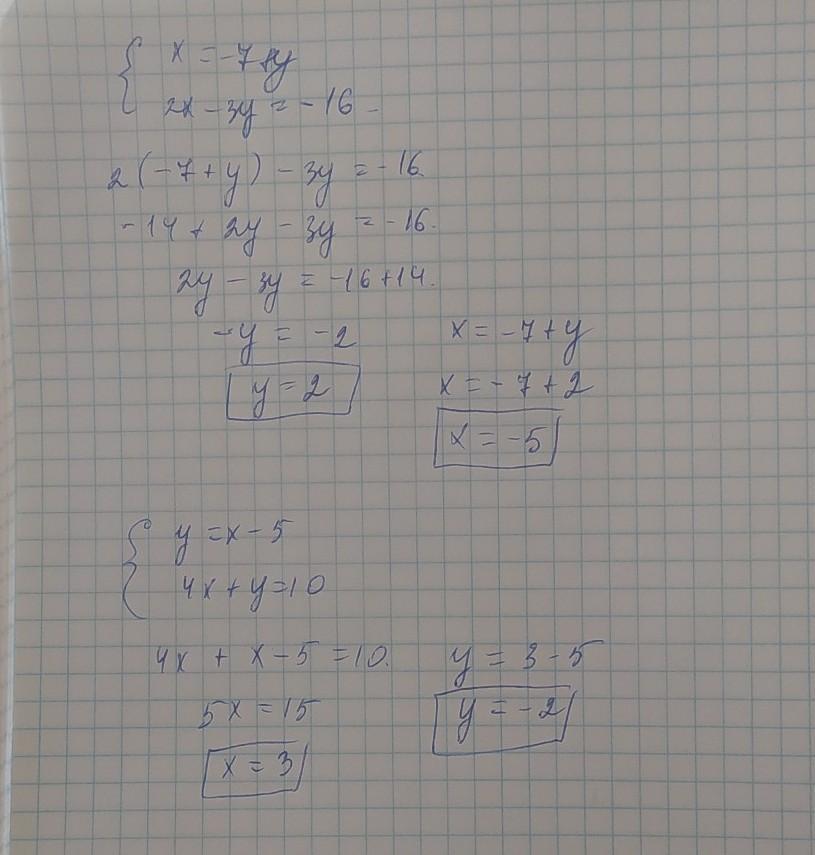 x = -7+y
2x - 3y = -16
2(-7+y) - 3y = -16.
-14 + 2y - 3y = -16.
2y - 3y = -16+14.
-y = -2
y = 2
x = -7+y
x = -7+2
x = -5
y = x - 5
4x + y = 10
4x + x - 5 = 10.
5x = 15
x = 3
y = 3 - 5
y = -2